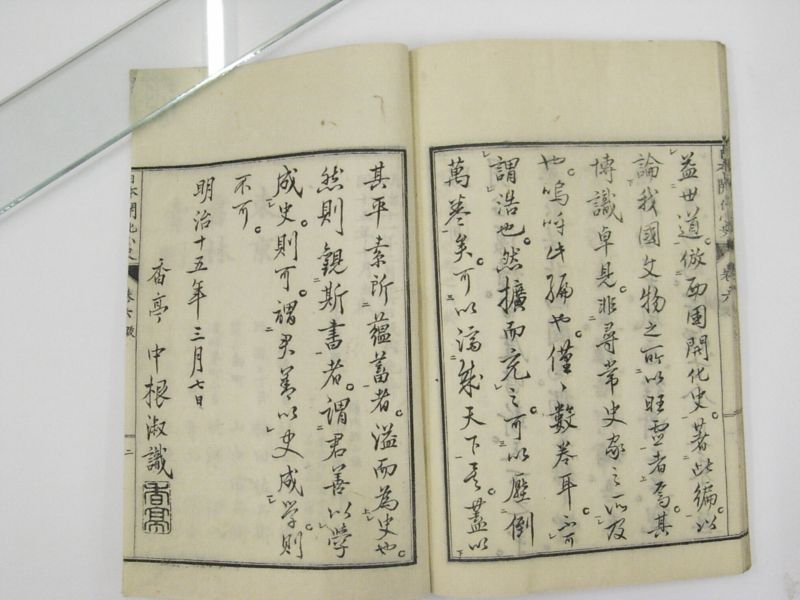 益世道。倣西国開化史。著此編。以
論我國文物之所以旺盛者焉。其
博識卓見。非尋常史家之所及
也。嗚呼此編也。僅々數卷耳。不可
謂浩也。然擴而充之。可以壓倒
萬卷矣。可以 天下 蓋以
其平素所蘊蓄者。溢而為史也。
然則觀斯書者。謂君善以學
成史則可。謂君善以史成学則
不可。
明治十五年三月七日
香亭 中根淑識
香亭
日本開化小史 卷六
日本開化小史 卷六跋 二